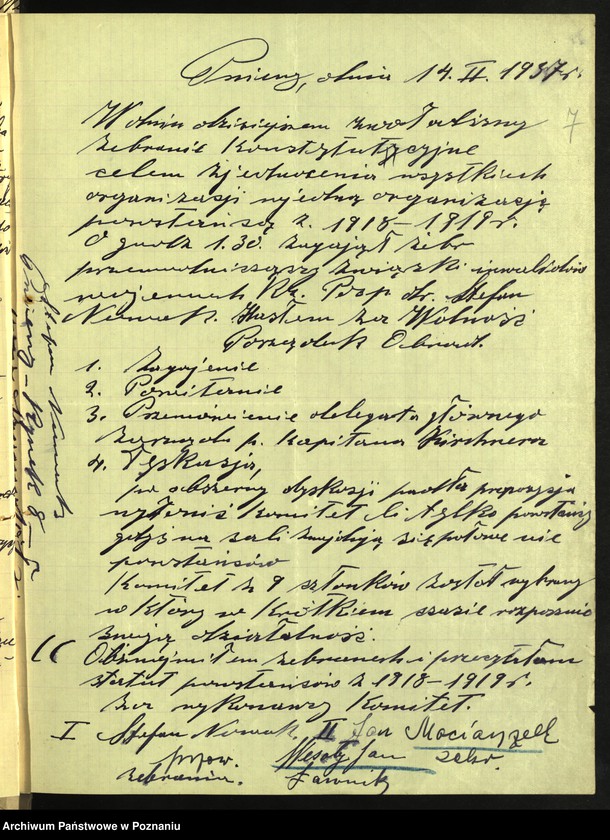 Gniezno, dnia 14. II. 1937 r.
7
W dniu dzisiejszem zwołaliśmy
zebranie Konstytucyjne
celem zjednoczenia wszystkich
organizacji w jedną organizację
powstańcą z. 1918-1919 r.
O godz 1.30. zagajał zebr
przewodniczący związki inwalidów
wojennych Rz. Posp. dr. Stefan
Nowak. Hasłem za Wolność
Porządek Obrad.
1. Zagajenie
2. Powitanie
3. Przemówienie delegata głównego
zarządu p. Kapitana Kirchnera
4. Dyskusja,
po obszerny dyskusji padła propozycja
wybrać Komitet li tylko powstańcy
gdyż na sali znajdują się połowe nie
powstańców
Komitet z 9 członków został wybrany
w który w Krótkiem czasie rozpocznie
swoją działalność.
Obznajmiłem zebranych i przeczytałem
statut powstańców z 1918-1919 r.
za wykonawczy Komitet.
I Stefan Nowak II Jan Maciaszek
przew. Wesoły Jan sekr.
zebrania. Ławnik
Stefan Nowak
Gniezno - Rynek 8
Archiwum Państwowe w Poznaniu